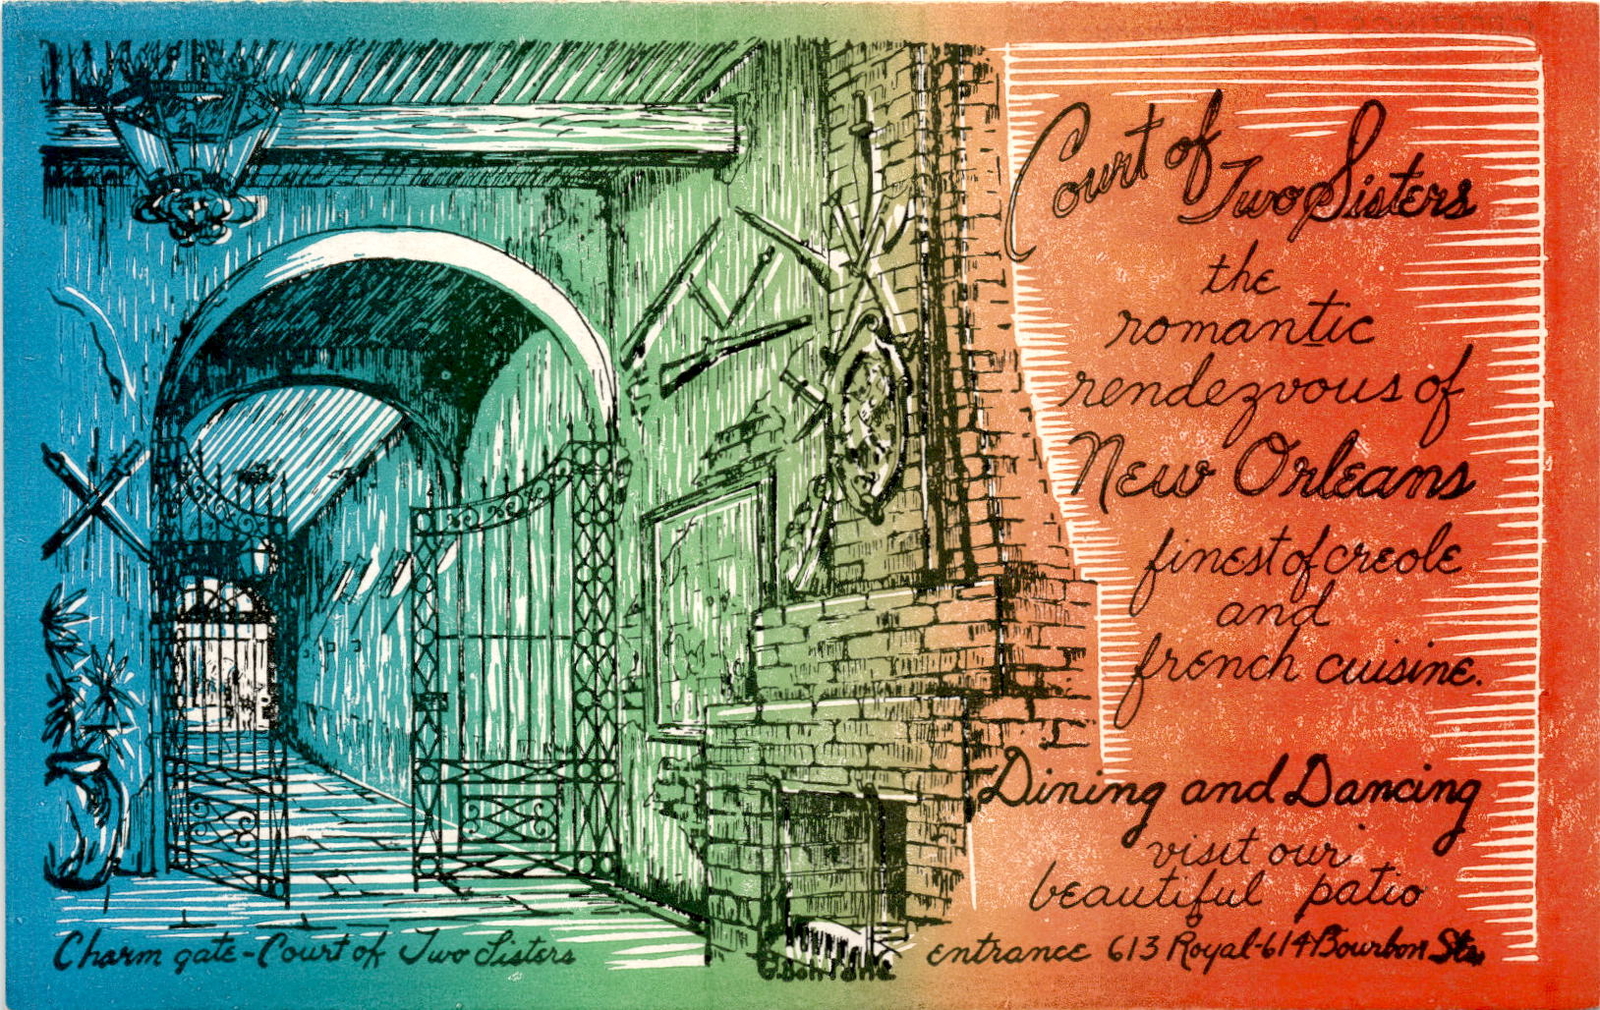 Court of
Two Sisters
the
romantic
rendezvous of
New Orleans
finest of creole
and
french cuisine.
Dining and Dancing
visit our
beautiful patio
entrance 613 Royal-614 Bourbon Sts
Charm gate-Court of Two Sisters